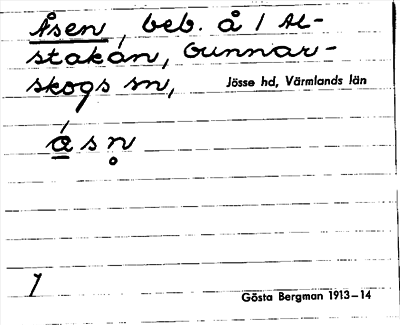 Åsen, beb. å 1 Al-
stakan, Gunnar-
skogs sn,
Jösse hd, Värmlands län
ǻ s n̥
1
Gösta Bergman 1913–14